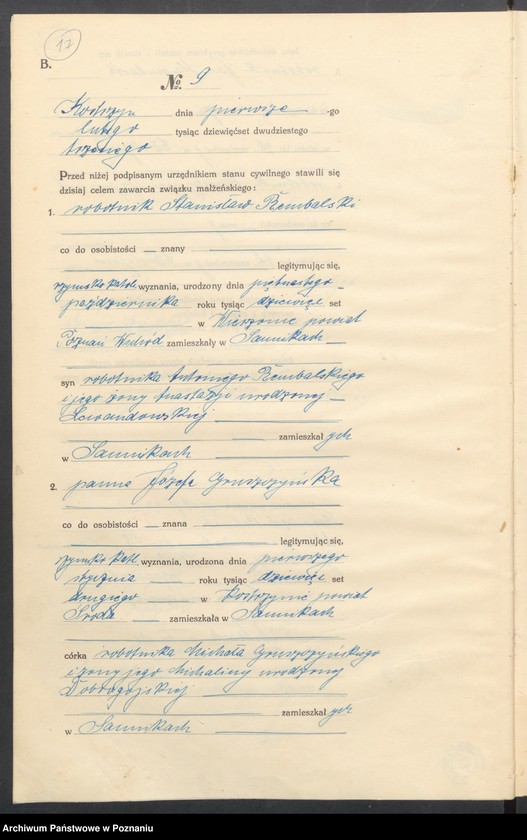 17
B.
№ 9
Kostrzyn dnia pierwsze -go
lutego tysiąc dziewięćset dwudziestego
trzeciego
Przed niżej podpisanym urzędnikiem stanu cywilnego stawili się
dzisiaj celem zawarcia związku małżeńskiego:
1. robotnik Stanisław Rembalski
co do osobistości — znany
legitymując się,
rzymsko katol wyznania, urodzony dnia piętnastego
października roku tysiąc dziewięć set
w Wierzonce powiat
Poznań Wschód zamieszkały w Sannikach
syn robotnika Antoniego Rembalskiego
i jego żony Anastazji urodzonej
Lewandowskiej
zamieszkał ych
w Sannikach
2. panna Józefa Gruszczyńska
co do osobistości — znana
legitymując się,
rzymsko katl wyznania, urodzona dnia pierwszego
stycznia roku tysiąc dziewięć set
drugiego w Kostrzynie powiat
Środa — zamieszkała w Sannikach
córka robotnika Michała Gruszczyńskiego
i żony jego Michaliny urodzonej
zamieszkał ych
w Sannikach
Archiwum Państwowe w Poznaniu